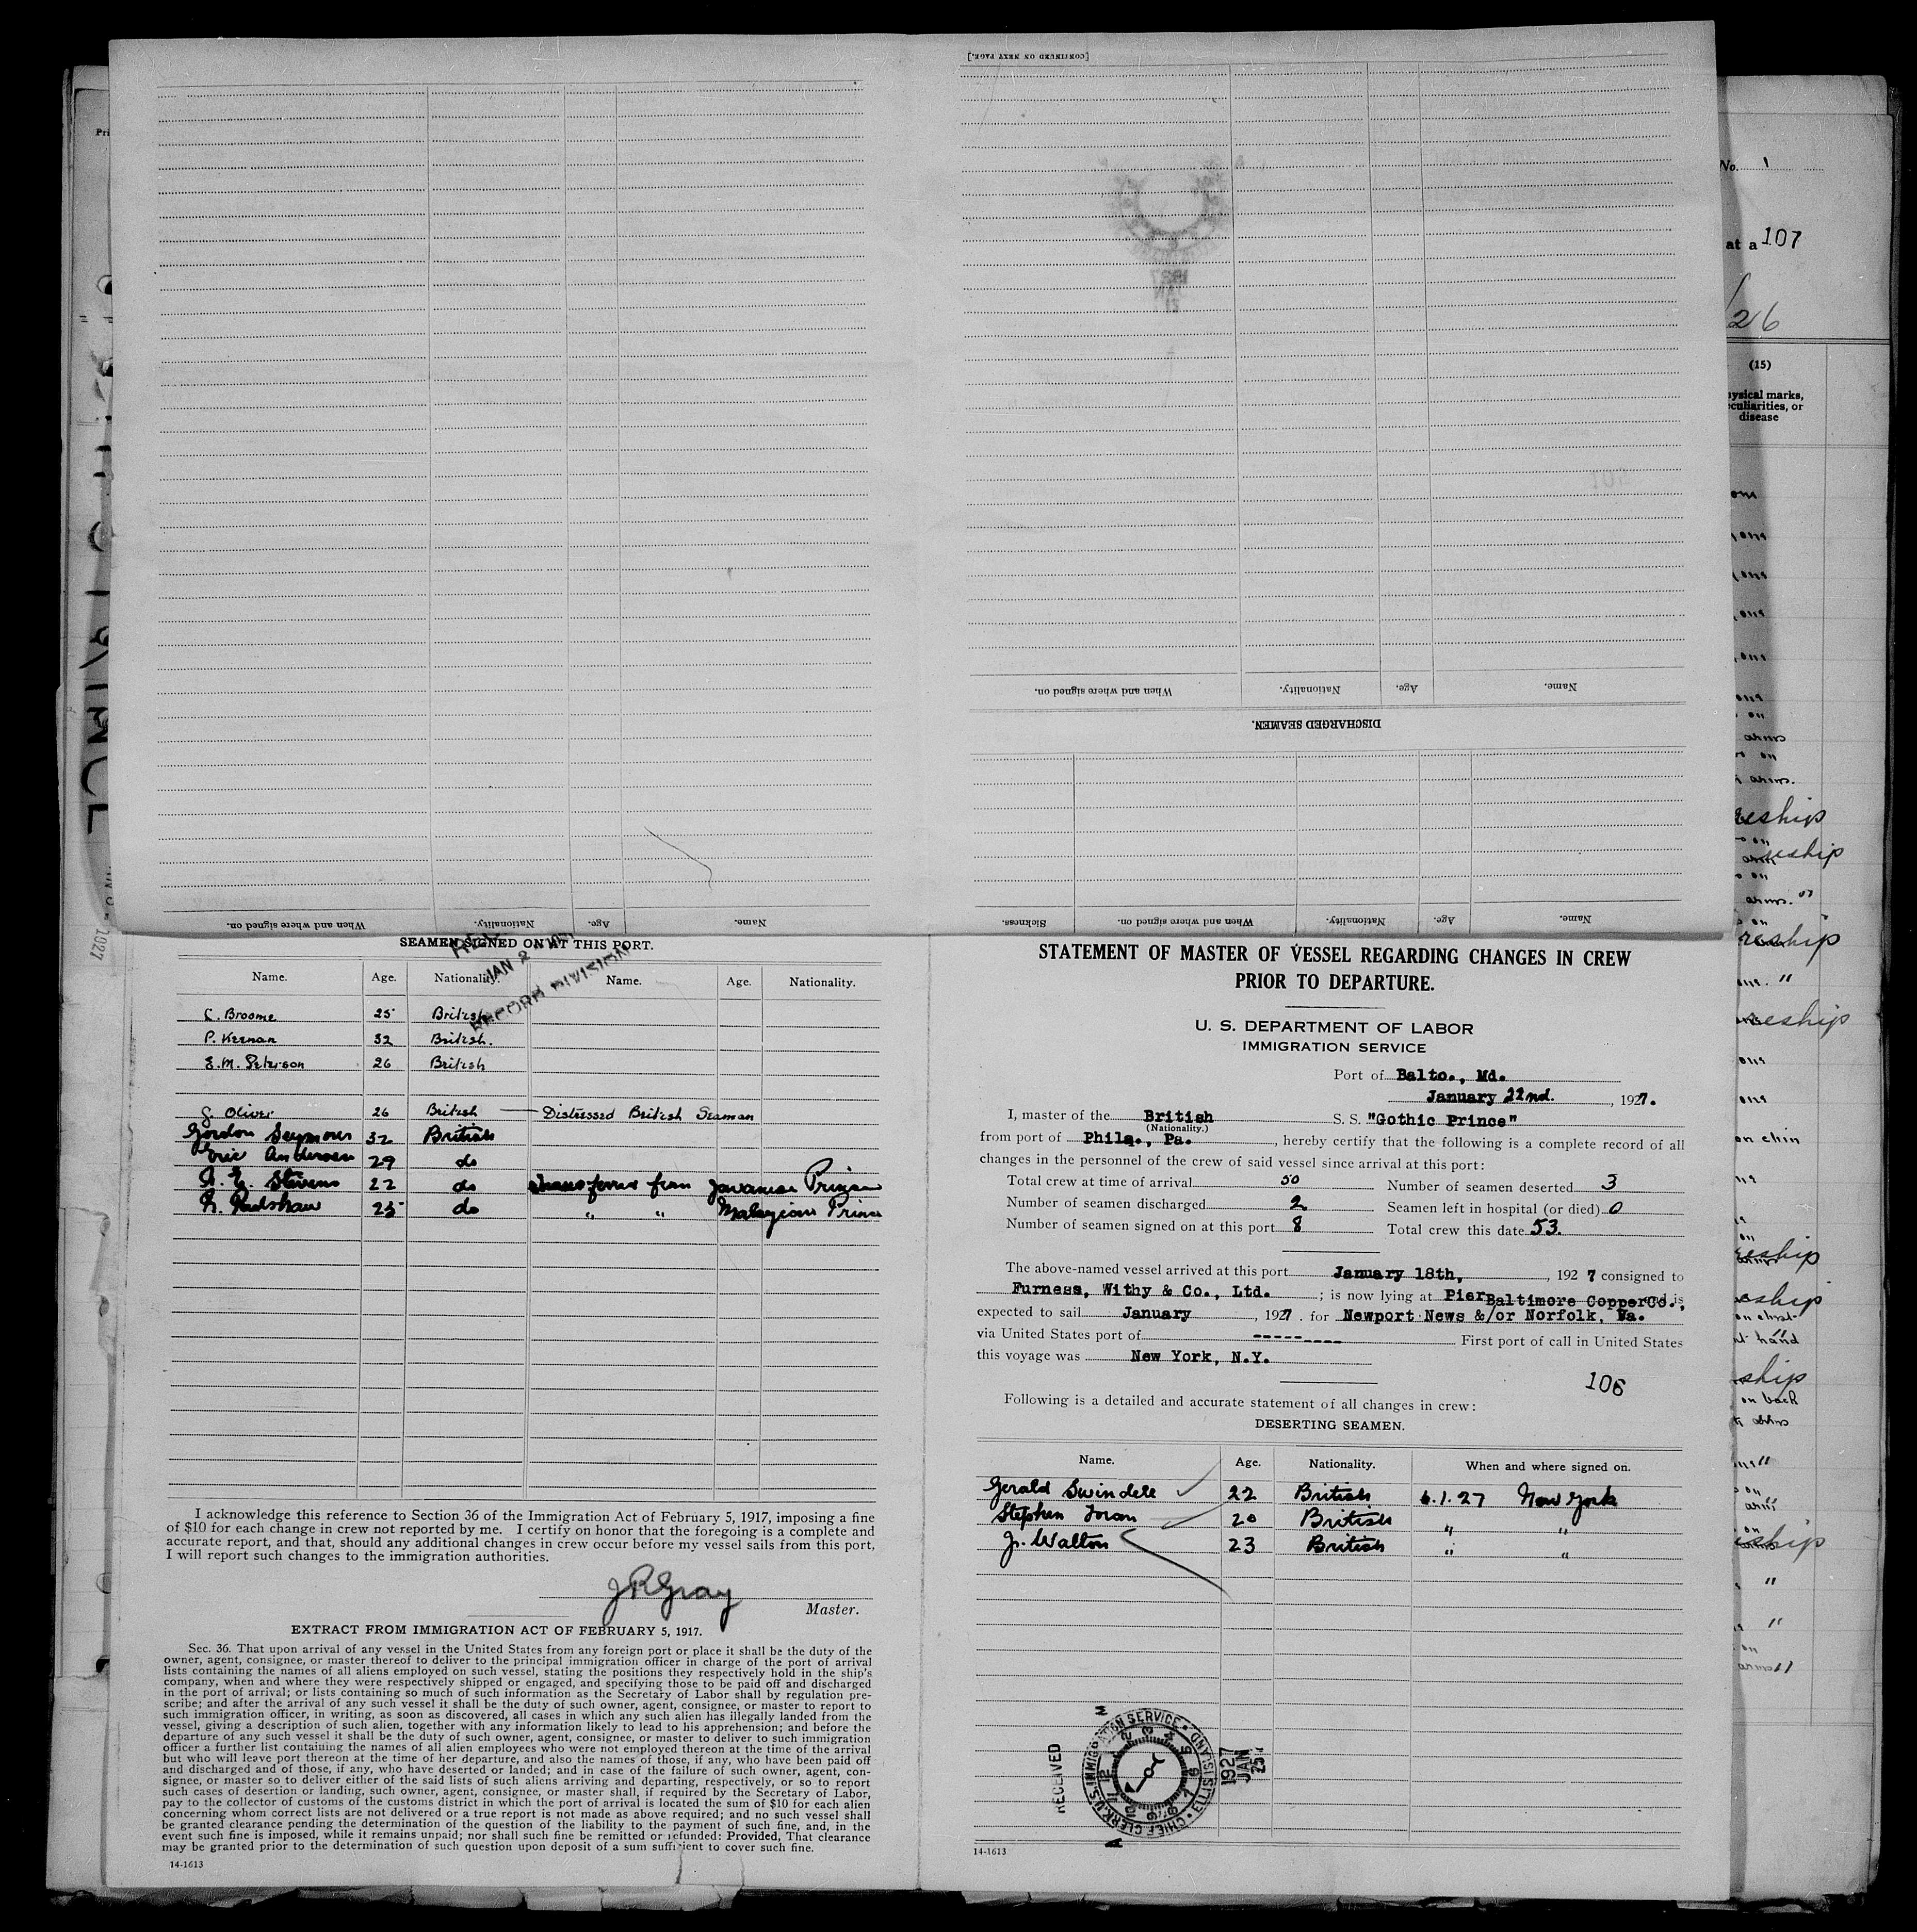 [CONTINUED ON NEXT PAGE.]
No. 1
at a 107
26
(15)
ysical marks,
culiarities, or
disease
When and where signed on. Nationality. Age. Name.
DISCHARGED SEAMEN.
Sickness. When and where signed on. Nationality. Age. Name.
When and where signed on. Nationality. Age. Name.
SEAMEN SIGNED ON AT THIS PORT.
JAN 2
RECORD DIVISION
Name. Age. Nationality. Name. Age. Nationality.
C. Broome 25 British
P. Keenan 32 British.
E.M. Peterson 26 British
G. Oliver 26 British — Distressed British Seaman
Gordon Seymour 32 British
Eric Andersen 29 do
A. E. Stevens 22 do Transferred from Javanese Prince
N. Redshaw 25 do " " Malayian Prince
I acknowledge this reference to Section 36 of the Immigration Act of February 5, 1917, imposing a fine
of $10 for each change in crew not reported by me. I certify on honor that the foregoing is a complete and
accurate report, and that, should any additional changes in crew occur before my vessel sails from this port,
I will report such changes to the immigration authorities.
J R Gray
Master.
EXTRACT FROM IMMIGRATION ACT OF FEBRUARY 5, 1917.
Sec. 36. That upon arrival of any vessel in the United States from any foreign port or place it shall be the duty of the
owner, agent, consignee, or master thereof to deliver to the principal immigration officer in charge of the port of arrival
lists containing the names of all aliens employed on such vessel, stating the positions they respectively hold in the ship's
company, when and where they were respectively shipped or engaged, and specifying those to be paid off and discharged
in the port of arrival; or lists containing so much of such information as the Secretary of Labor shall by regulation pre-
scribe; and after the arrival of any such vessel it shall be the duty of such owner, agent, consignee, or master to report to
such immigration officer, in writing, as soon as discovered, all cases in which any such alien has illegally landed from the
vessel, giving a description of such alien, together with any information likely to lead to his apprehension; and before the
departure of any such vessel it shall be the duty of such owner, agent, consignee, or master to deliver to such immigration
officer a further list containing the names of all alien employees who were not employed thereon at the time of the arrival
but who will leave port thereon at the time of her departure, and also the names of those, if any, who have been paid off
and discharged and of those, if any, who have deserted or landed; and in case of the failure of such owner, agent, con-
signee, or master so to deliver either of the said lists of such aliens arriving and departing, respectively, or so to report
such cases of desertion or landing, such owner, agent, consignee, or master shall, if required by the Secretary of Labor,
pay to the collector of customs of the customs district in which the port of arrival is located the sum of $10 for each alien
concerning whom correct lists are not delivered or a true report is not made as above required; and no such vessel shall
be granted clearance pending the determination of the question of the liability to the payment of such fine, and, in the
event such fine is imposed, while it remains unpaid; nor shall such fine be remitted or refunded: Provided, That clearance
may be granted prior to the determination of such question upon deposit of a sum sufficient to cover such fine.
14-1613
STATEMENT OF MASTER OF VESSEL REGARDING CHANGES IN CREW
PRIOR TO DEPARTURE.
U. S. DEPARTMENT OF LABOR
IMMIGRATION SERVICE
Port of Balto., Md.
January 22nd. , 1927.
I, master of the British S. S. "Gothic Prince"
(Nationality.)
from port of Phila., Pa. , hereby certify that the following is a complete record of all
changes in the personnel of the crew of said vessel since arrival at this port:
Total crew at time of arrival 50 Number of seamen deserted 3
Number of seamen discharged 2 Seamen left in hospital (or died) 0
Number of seamen signed on at this port 8 Total crew this date 53.
The above-named vessel arrived at this port January 18th, , 1927 consigned to
Furness, Withy & Co., Ltd. ; is now lying at Pier Baltimore Copper Co., and is
expected to sail January , 1927. for Newport News &/or Norfolk, Va.
via United States port of --------- First port of call in United States
this voyage was New York, N.Y.
106
Following is a detailed and accurate statement of all changes in crew:
DESERTING SEAMEN.
Name. Age. Nationality. When and where signed on.
Gerald Swindell 22 British 6.1.27 New York
Stephen Foran 20 British " "
J. Walton 23 British " "
RECEIVED
CHIEF CLERK, U.S. IMMIGRATION SERVICE • ELLIS ISLAND •
1927
JAN
25
A M
14-1613